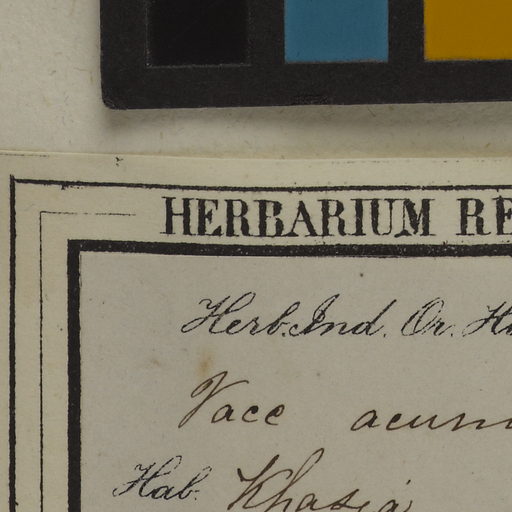 HERBARIUM RE
Herb. Ind. Or. H
Vacc acum
Hab. Khasia